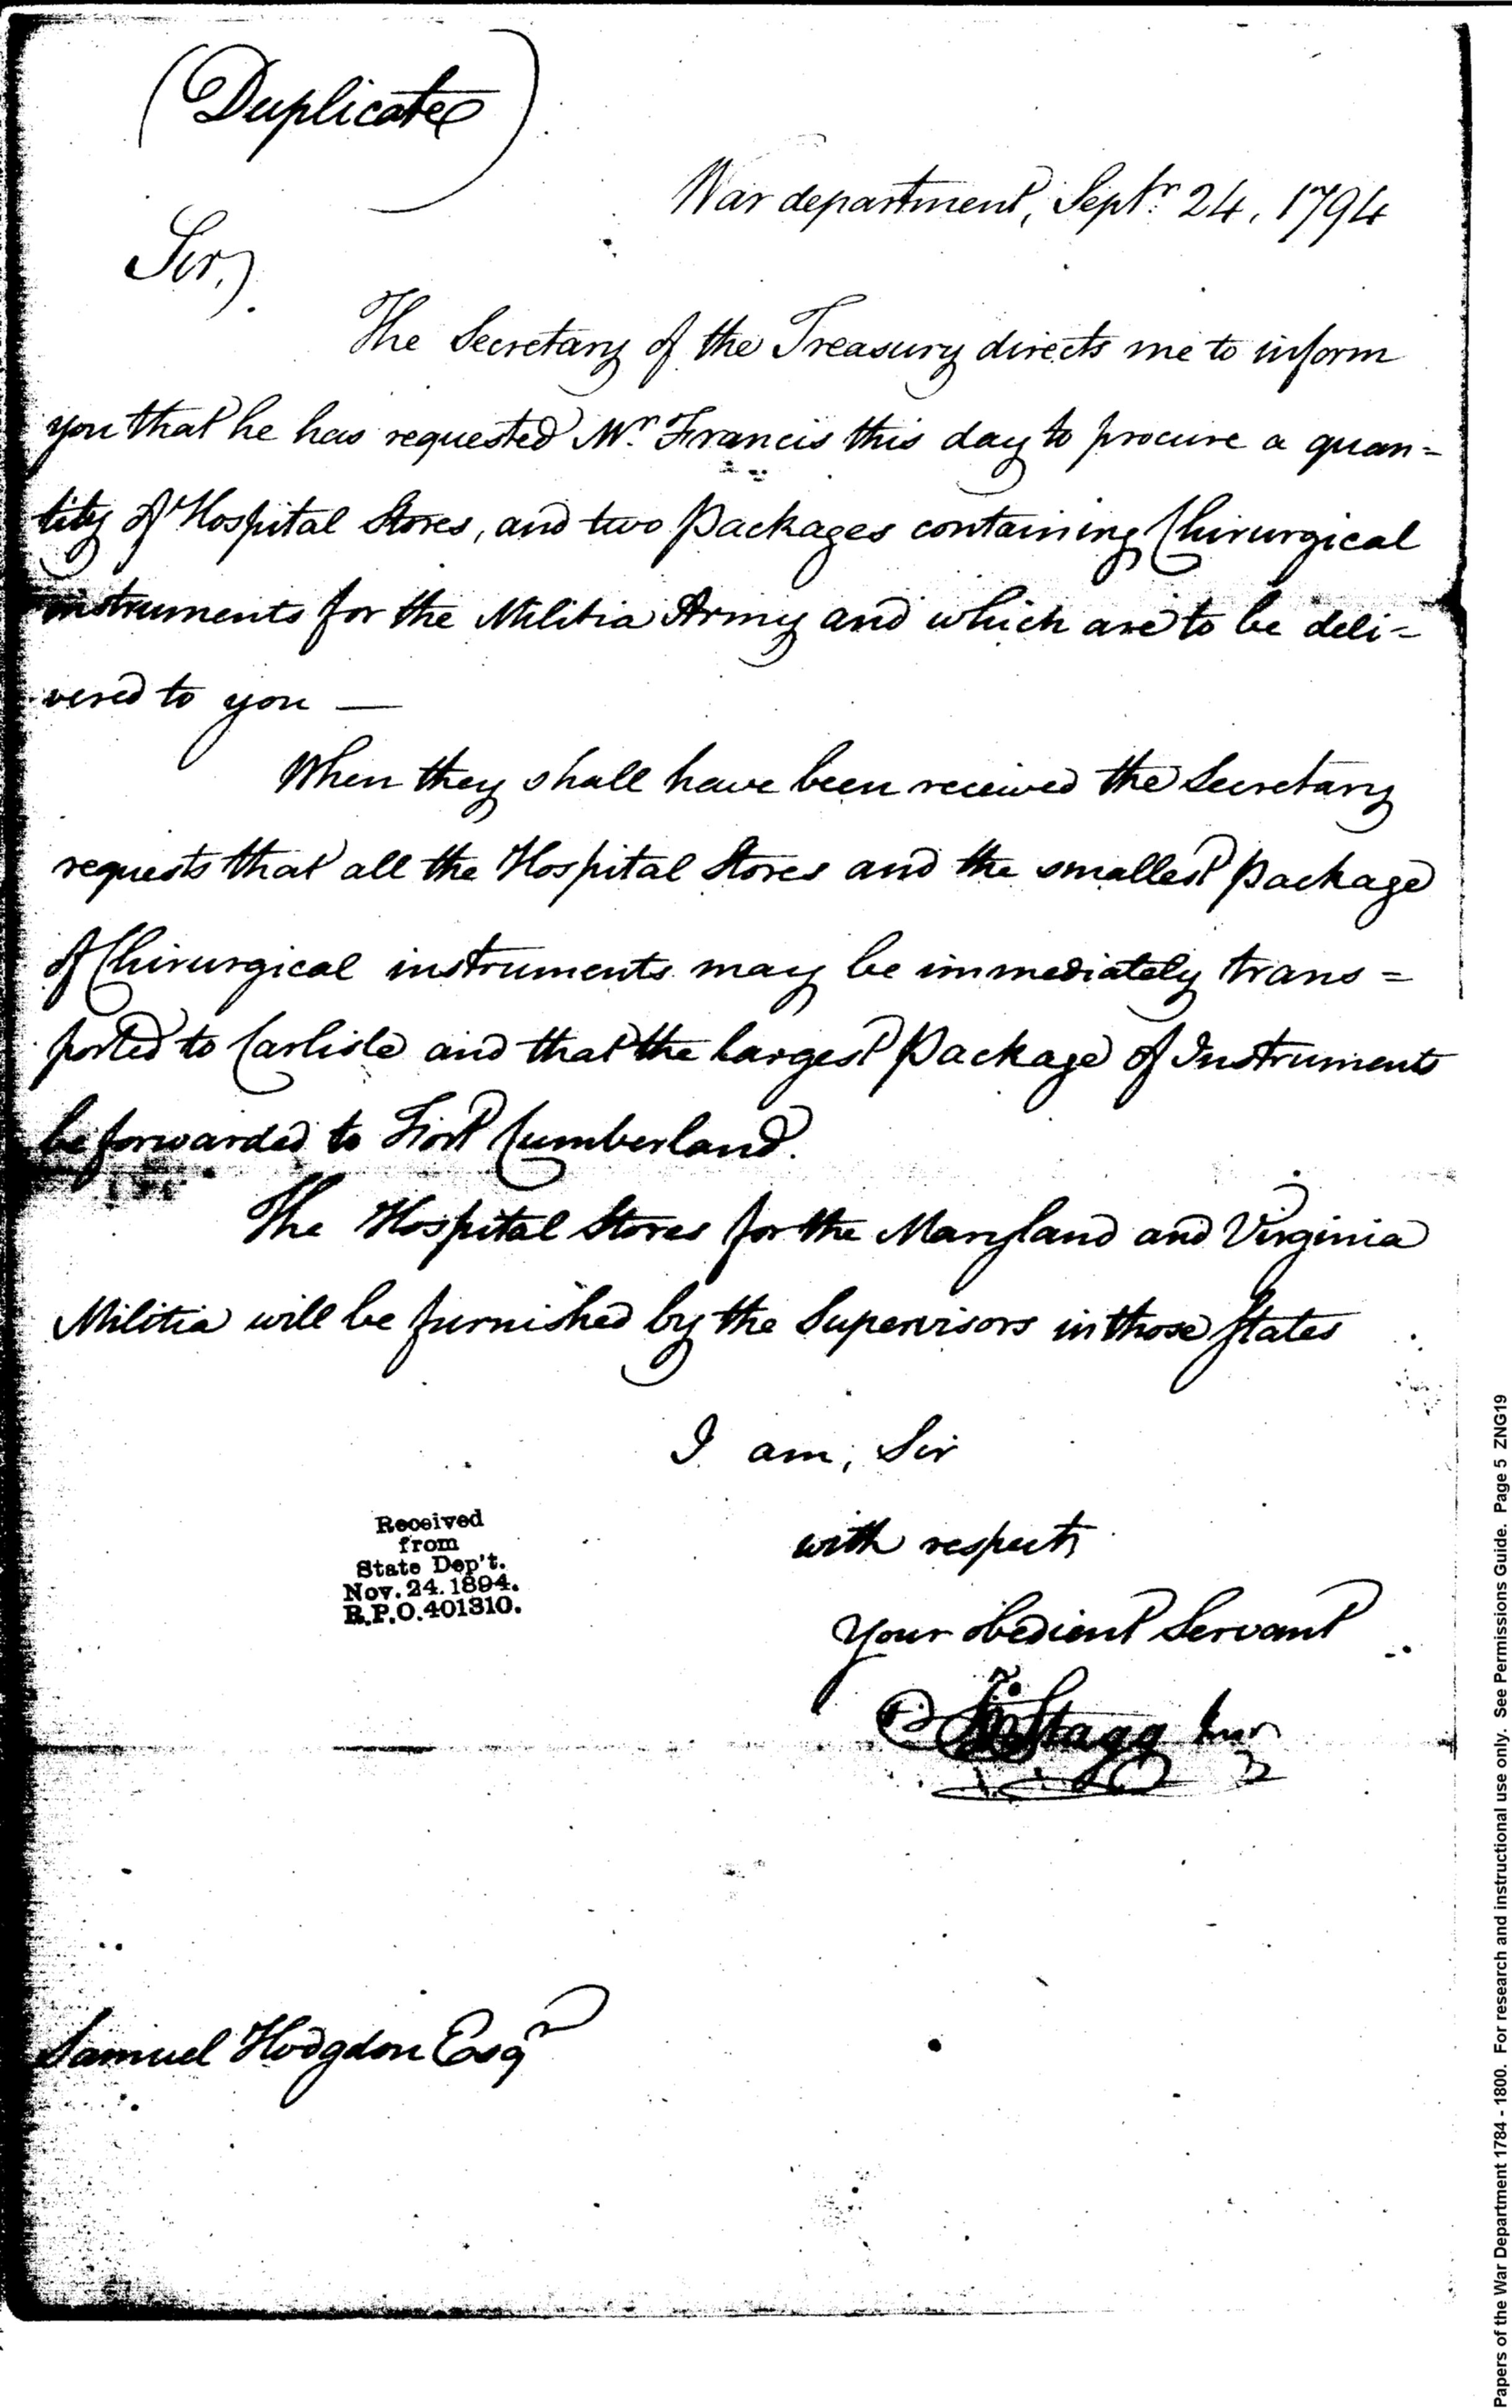 (Duplicate)
War department, Septr. 24, 1794
Sir,
The Secretary of the Treasury directs me to inform
you that he has requested Mr. Francis this day to procure a quan=
tity of Hospital Stores, and two packages containing Chirurgical
instruments for the Militia Army and which are to be deli=
vered to you —
When they shall have been received the Secretary
requests that all the Hospital Stores and the smallest package
of Chirurgical instruments may be immediately trans=
ported to Carlisle and that the largest package of Instruments
be forwarded to Fort Cumberland.
The Hospital Stores for the Maryland and Virginia
Militia will be furnished by the Supervisors in those States
I am, Sir
with respect,
Your obedient Servant
Stagg Junr
Received
from
State Dep't.
Nov. 24. 1894.
R.P.O. 401310.
Samuel Hodgdon Esqr
Papers of the War Department 1784 - 1800. For research and instructional use only. See Permissions Guide. Page 5 ZNG19